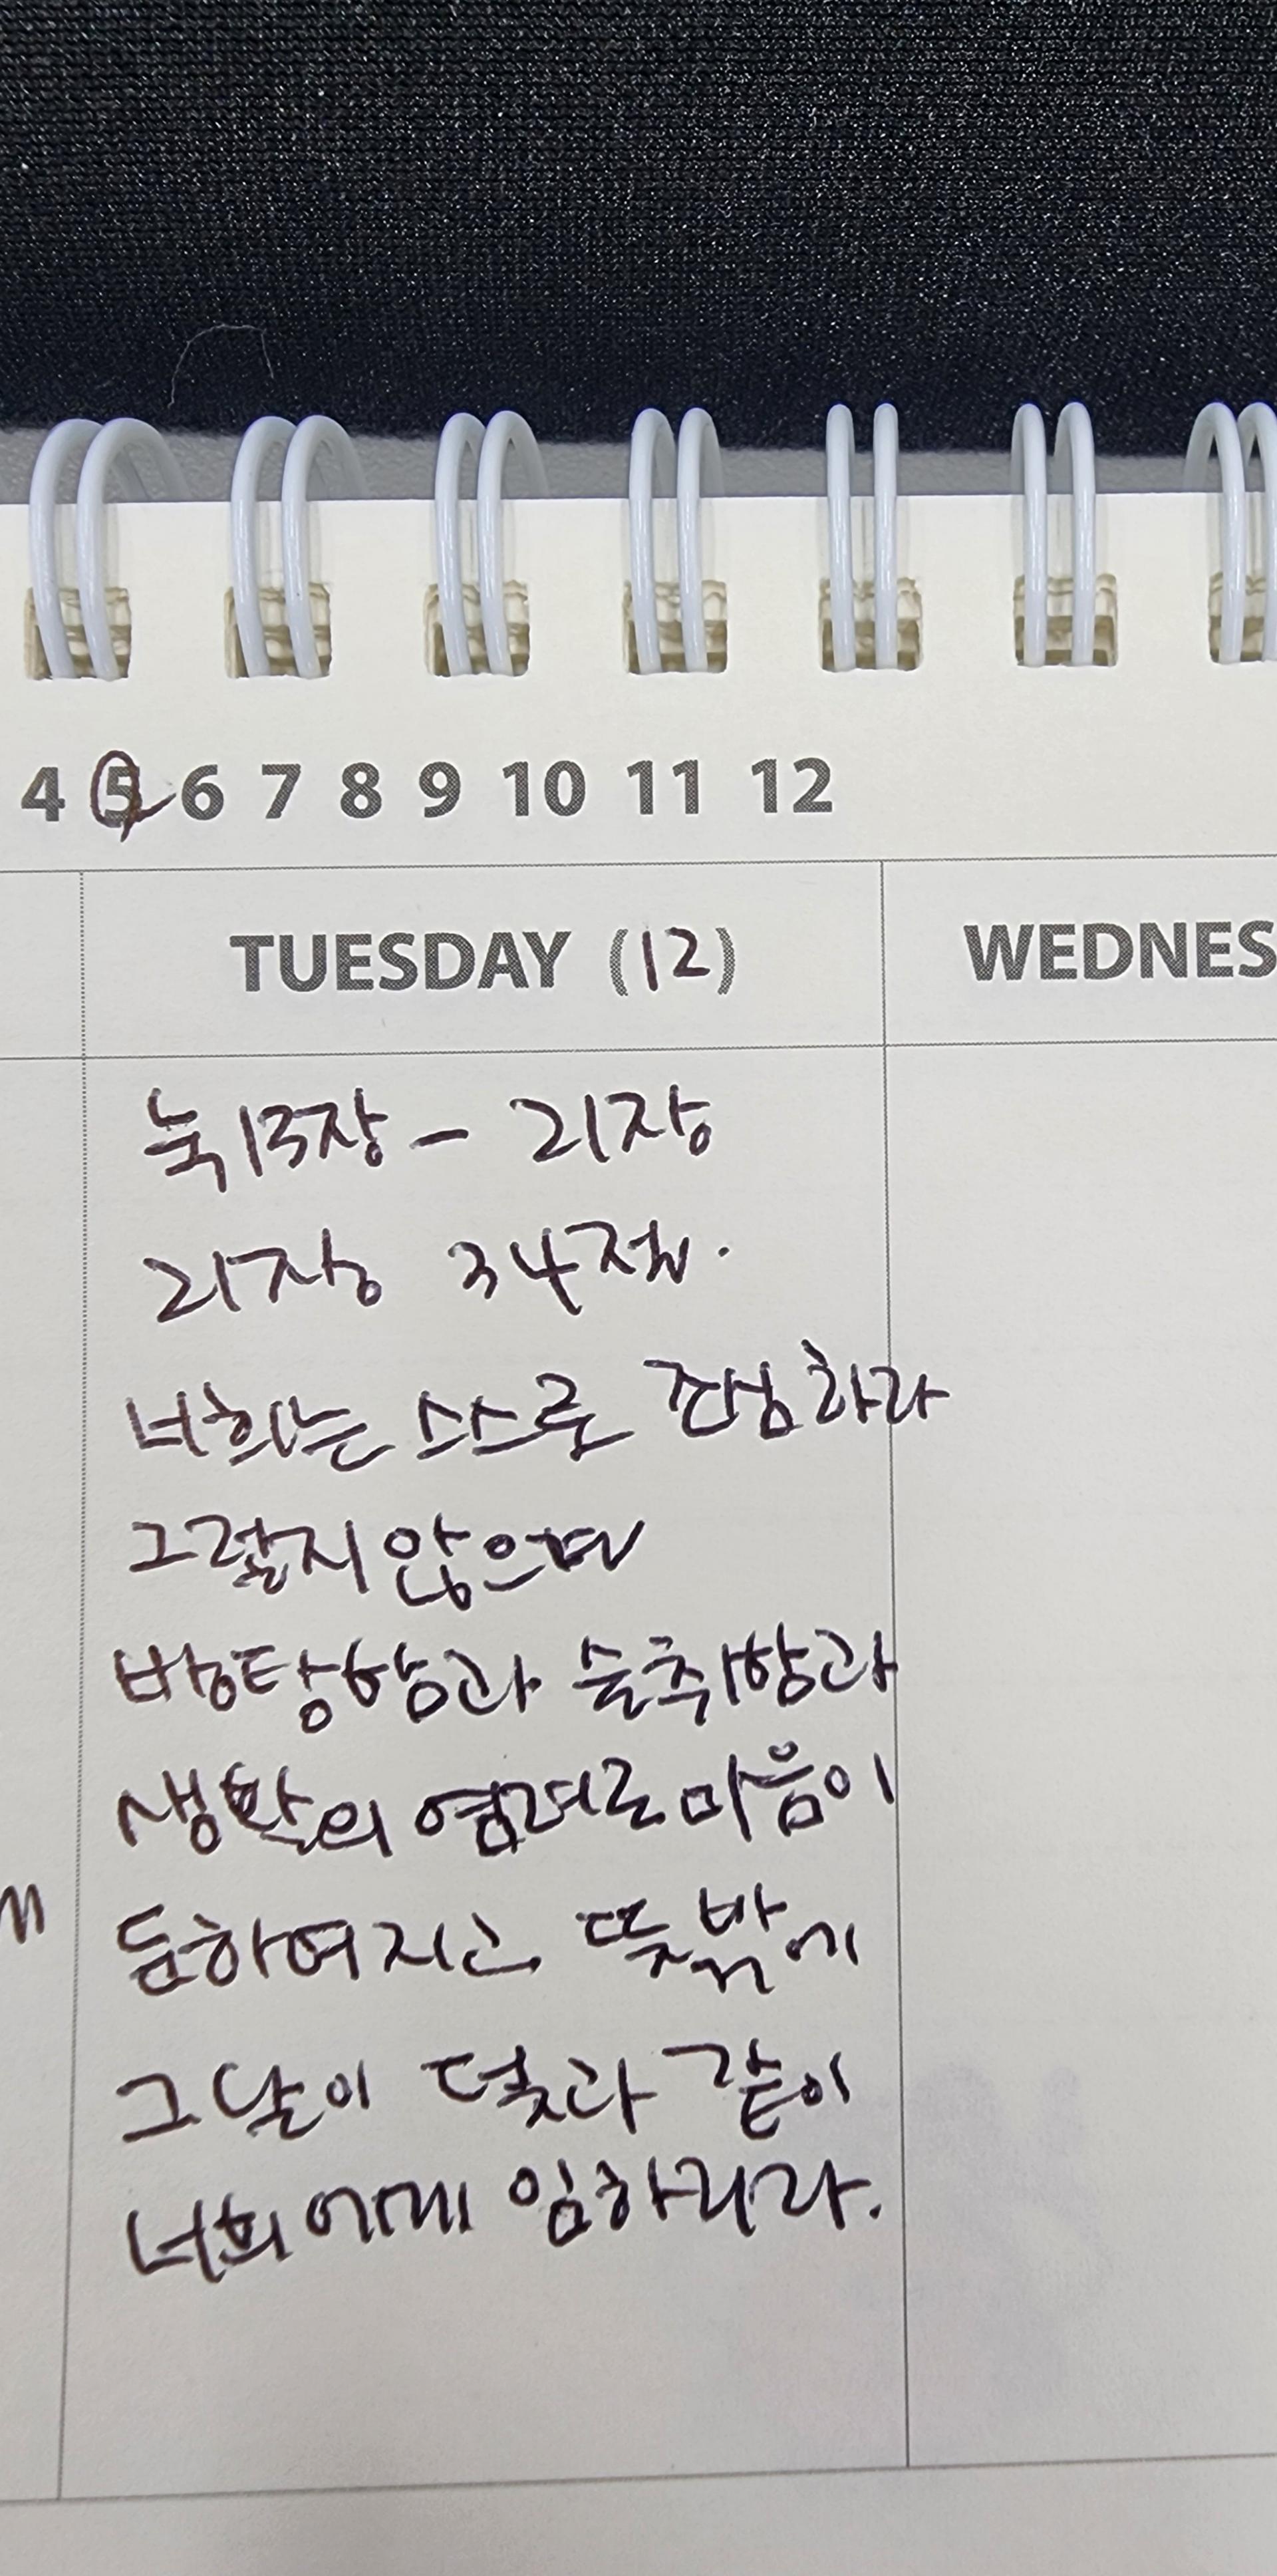 4 5 6 7 8 9 10 11 12
TUESDAY (12)
WEDNES
눅13장 - 21장
21장 34절.
너희는 스스로 조심하라
그렇지 않으면
방탕함과 술취함과
생활의 염려로 마음이
m
둔하여지고 뜻밖에
그날이 덫과 같이
너희에게 임하리라.